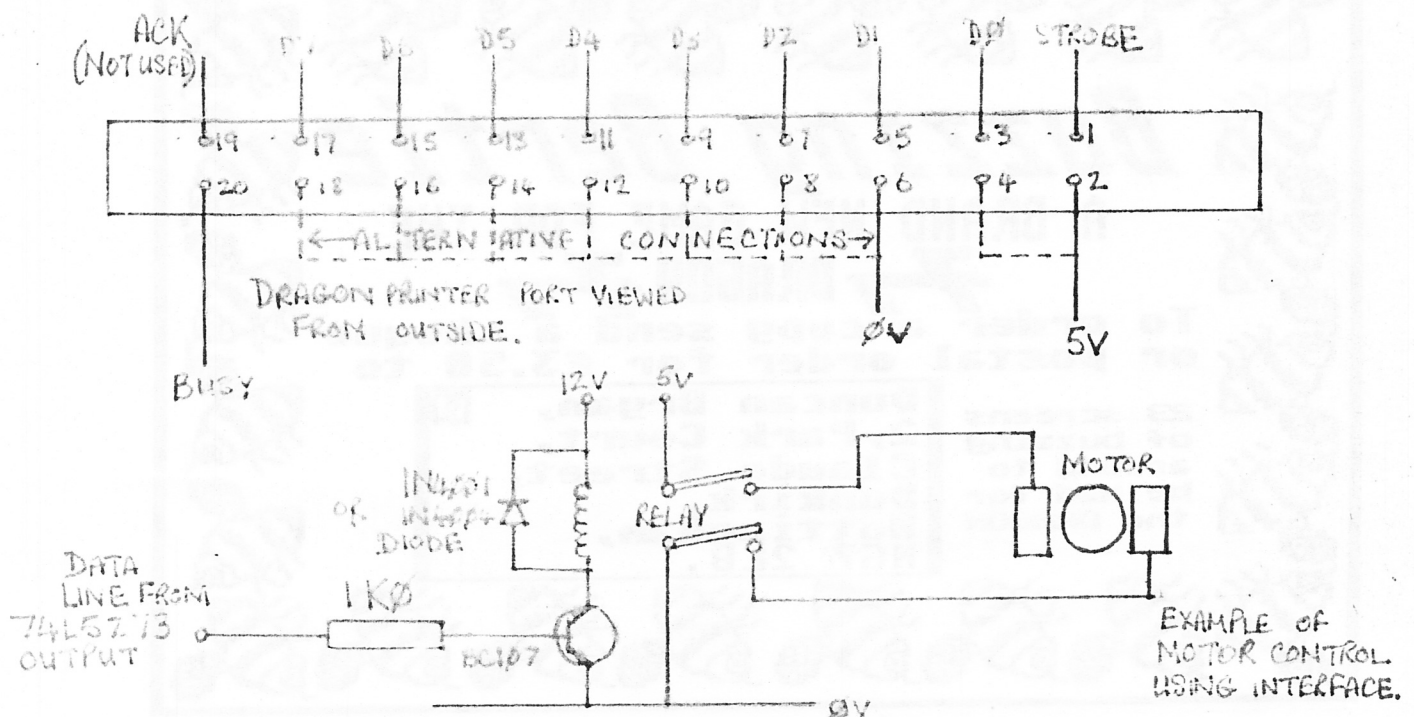 ACK
(NOT USED)
D7 D6 D5 D4 D3 D2 D1 DØ STROBE
19 17 15 13 11 9 7 5 3 1
20 18 16 14 12 10 8 6 4 2
←ALTERNATIVE CONNECTIONS→
DRAGON PRINTER PORT VIEWED
FROM OUTSIDE.
ØV
5V
BUSY
12V 5V
OR
DIODE
RELAY
MOTOR
DATA
LINE FROM
74LS273
OUTPUT
1KØ
BC1Ø7
ØV
EXAMPLE OF
MOTOR CONTROL
USING INTERFACE.